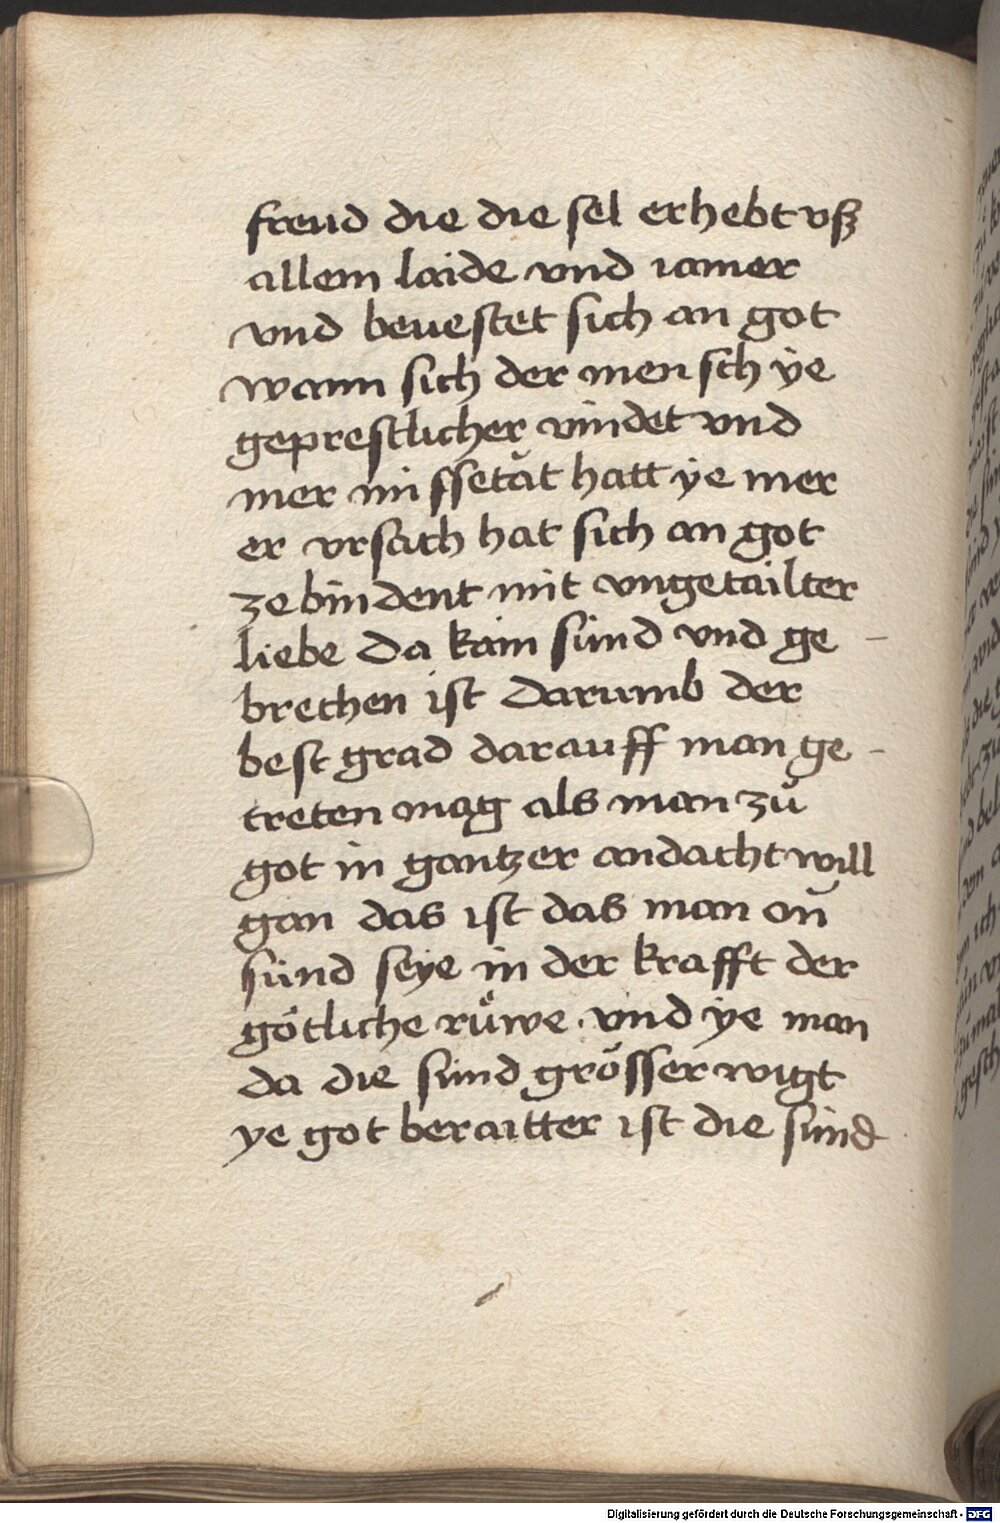 freud die die sel erhebt vß
allem laide vnd iamer
vnd beuestet sich an got
wann sich der mensch ye
geprestlicher vindet vnd
mer missetăt hatt ye mer
er vrsach hat sich an got
ze bindent mit vngetailter
liebe da kain sünd vnd ge –
brechen ist darumb der
best grad darauff man ge –
treten mag als man zů
got in gantzer andacht will
gan das ist das man on
sünd seye in der krafft der
götliche rüwe vnd ye man
da die sünd grösser wigt
ye got beraitter ist die sünd
Digitalisierung gefördert durch die Deutsche Forschungsgemeinschaft - DFG